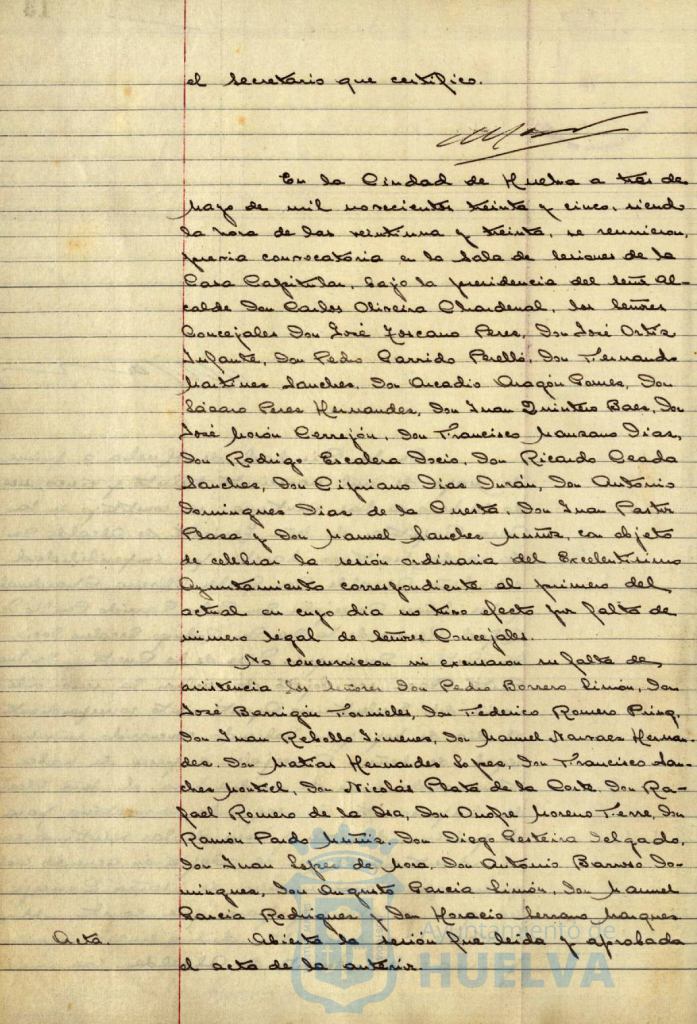 el Secretario que certifico.
En la Ciudad de Huelva a tres de
Mayo de mil novecientos treinta y cinco, siendo
la hora de las veintiuna y treinta, se reunieron,
previa convocatoria en la Sala de Sesiones de la
Casa Capitular, bajo la presidencia del Señor Al-
calde Don Carlos Oliveira Chardenal, los Señores
Concejales Don José Toscano Peres, Don José Ortiz
Infante, Don Pedro Garrido Perelló, Don Fernando
Martines Sanches, Don Arcadio Aragón Gomes, Don
Lázaro Peres Hernandes, Don Juan Quintero Baes, Don
José Morón Cerrejón, Don Francisco Manzano Dias,
Don Rodrigo Escalera Docio, Don Ricardo Ceada
Sanches, Don Cipriano Dias Durán, Don Antonio
Domingues Dias de la Cuesta, Don Juan Pastor
Basa y Don Manuel Sanches Muñoz, con objeto
de celebrar la sesión ordinaria del Excelentísimo
Ayuntamiento correspondiente al primero del
actual en cuyo dia no tuvo efecto por falta de
número legal de Señores Concejales.
No concurrieron ni excusaron su falta de
asistencia los Señores Don Pedro Borrero Limón, Don
José Barrigón Fornieles, Don Federico Romero
Don Juan Rebollo Jimenes, Don Manuel Narvaes Hernan-
des, Don Matias Hernandes Lopes, Don Francisco San-
ches Montiel, Don Nicolás Plata de la Corte, Don Ra-
fael Romero de la Osa, Don Onofre Moreno Ferre, Don
Ramón Pardo Muñiz, Don Diego Gesteira Delgado,
Don Juan Lopes de Mora, Don Antonio Barroso Do-
mingues, Don Augusto Garcia Limón, Don Manuel
Garcia Rodrigues y Don Horacio Serrano Marques
Acta. Abierta la sesión fue leida y aprobada
el acta de la anterior.
Ayuntamiento de
HUELVA